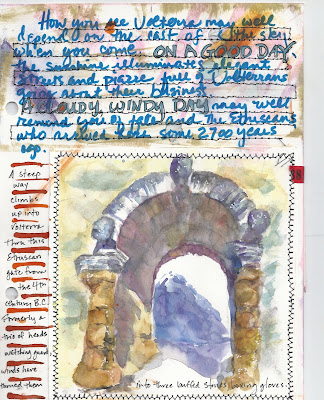 How you see Volterra may well
depend on the cast of the sky
when you come. ON A GOOD DAY,
the sunshine illuminates elegant
streets and piazze full of Volterrans
going about their business.
A CLOUDY, WINDY DAY may well
remind you of fate and the Etruscans
who arrived here some 2700 years
ago.
A steep
way
climbs
up into
Volterra
thru this
Etruscan
gate from
the 4th
century B.C.
Formerly a
trio of heads
watching guard,
winds have
turned them
into three buffed stones boxing gloves.